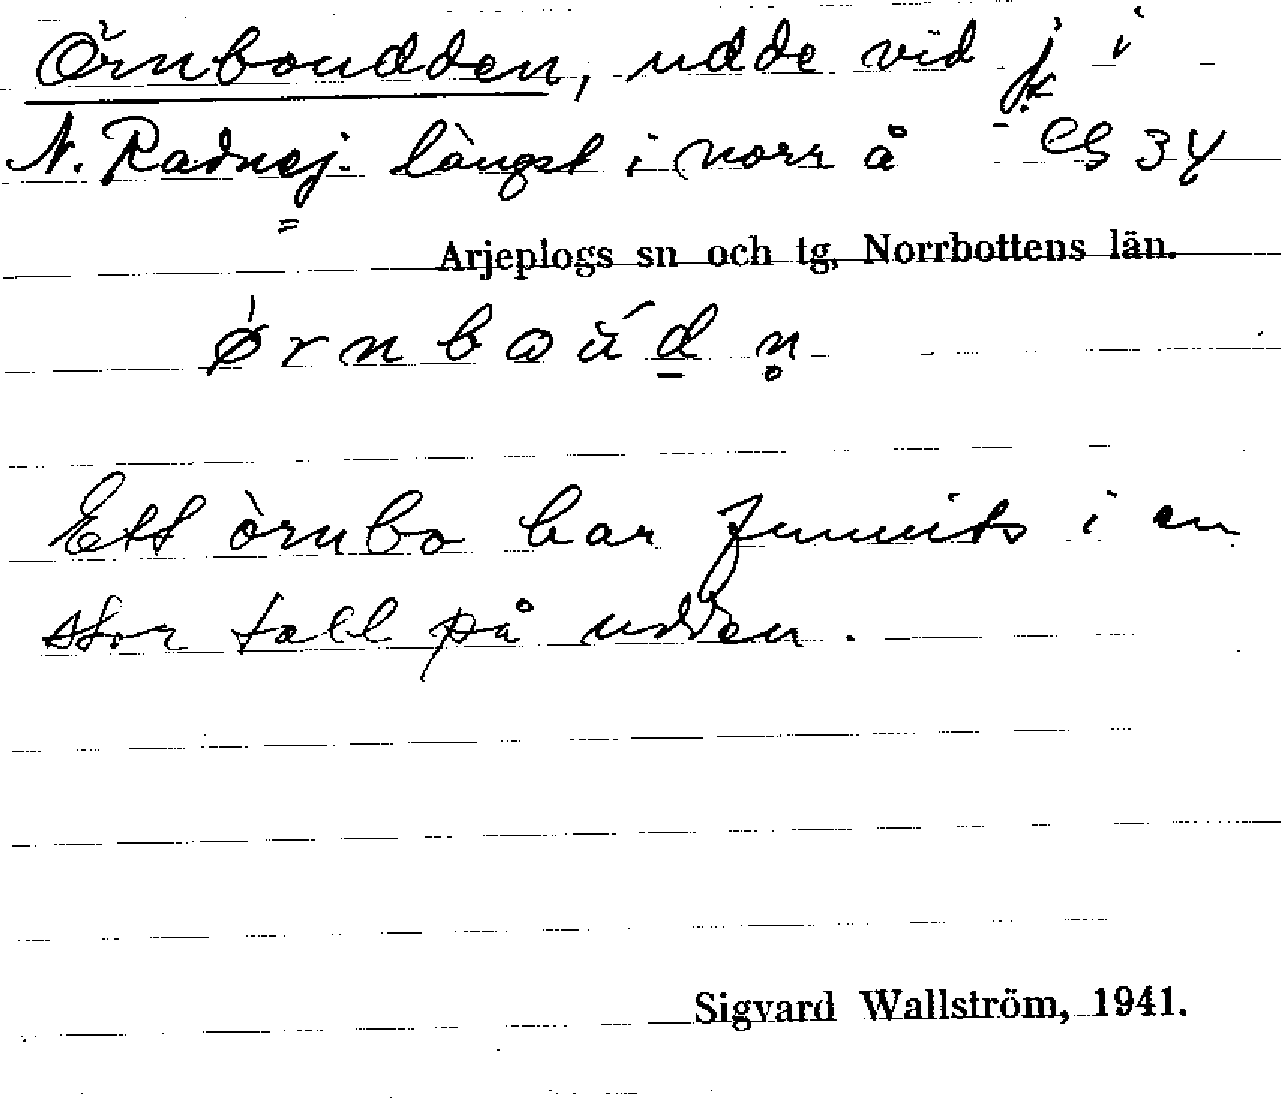 Örnboudden, udde vid jk i
N. Radnej. längst i norr å eg 34
Arjeplogs sn och tg, Norrbottens län.
ørnboúdn̥
Ett örnbo har funnits i en
stor tall på udden.
Sigvard Wallström, 1941.